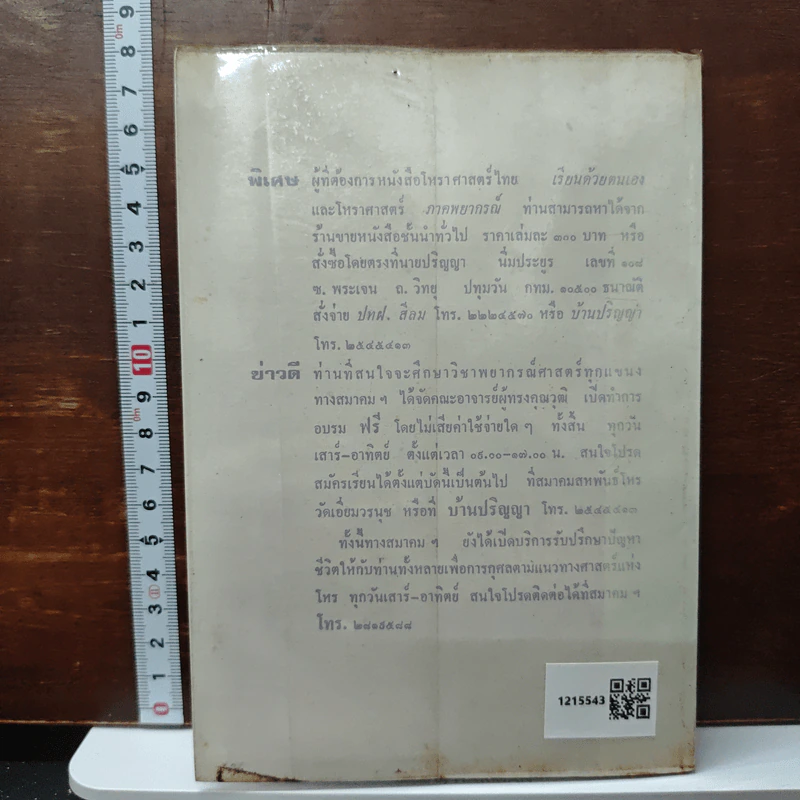 พิเศษ ผู้ที่ต้องการหนังสือโหราศาสตร์ไทย เรียนด้วยตนเอง
และโหราศาสตร์ ภาคพยากรณ์ ท่านสามารถหาได้จาก
ร้านขายหนังสือชั้นนำทั่วไป ราคาเล่มละ ๓๐๐ บาท หรือ
สั่งซื้อโดยตรงที่นายปริญญา นิ่มประยูร เลขที่ ๑๐๘
ซ. พระเจน ถ. วิทยุ ปทุมวัน กทม. ๑๐๕๐๐ ธนาณัติ
สั่งจ่าย ปทฝ. สีลม โทร. ๒๒๒๔๕๗๐ หรือ บ้านปริญญา
โทร. ๒๕๔๕๔๑๓
ข่าวดี ท่านที่สนใจจะศึกษาวิชาพยากรณ์ศาสตร์ทุกแขนง
ทางสมาคม ฯ ได้จัดคณะอาจารย์ผู้ทรงคุณวุฒิ เปิดทำการ
อบรม ฟรี โดยไม่เสียค่าใช้จ่ายใด ๆ ทั้งสิ้น ทุกวัน
เสาร์-อาทิตย์ ตั้งแต่เวลา ๐๙.๐๐-๑๗.๐๐ น. สนใจโปรด
สมัครเรียนได้ตั้งแต่บัดนี้เป็นต้นไป ที่สมาคมสหพันธ์โหร
วัดเอี่ยมวรนุช หรือที่ บ้านปริญญา โทร. ๒๕๔๕๔๑๓
ทั้งนี้ทางสมาคม ฯ ยังได้เปิดบริการรับปรึกษาปัญหา
ชีวิตให้กับท่านทั้งหลายเพื่อการกุศลตามแนวทางศาสตร์แห่ง
โหร ทุกวันเสาร์-อาทิตย์ สนใจโปรดติดต่อได้ที่สมาคม ฯ
โทร.
1215543